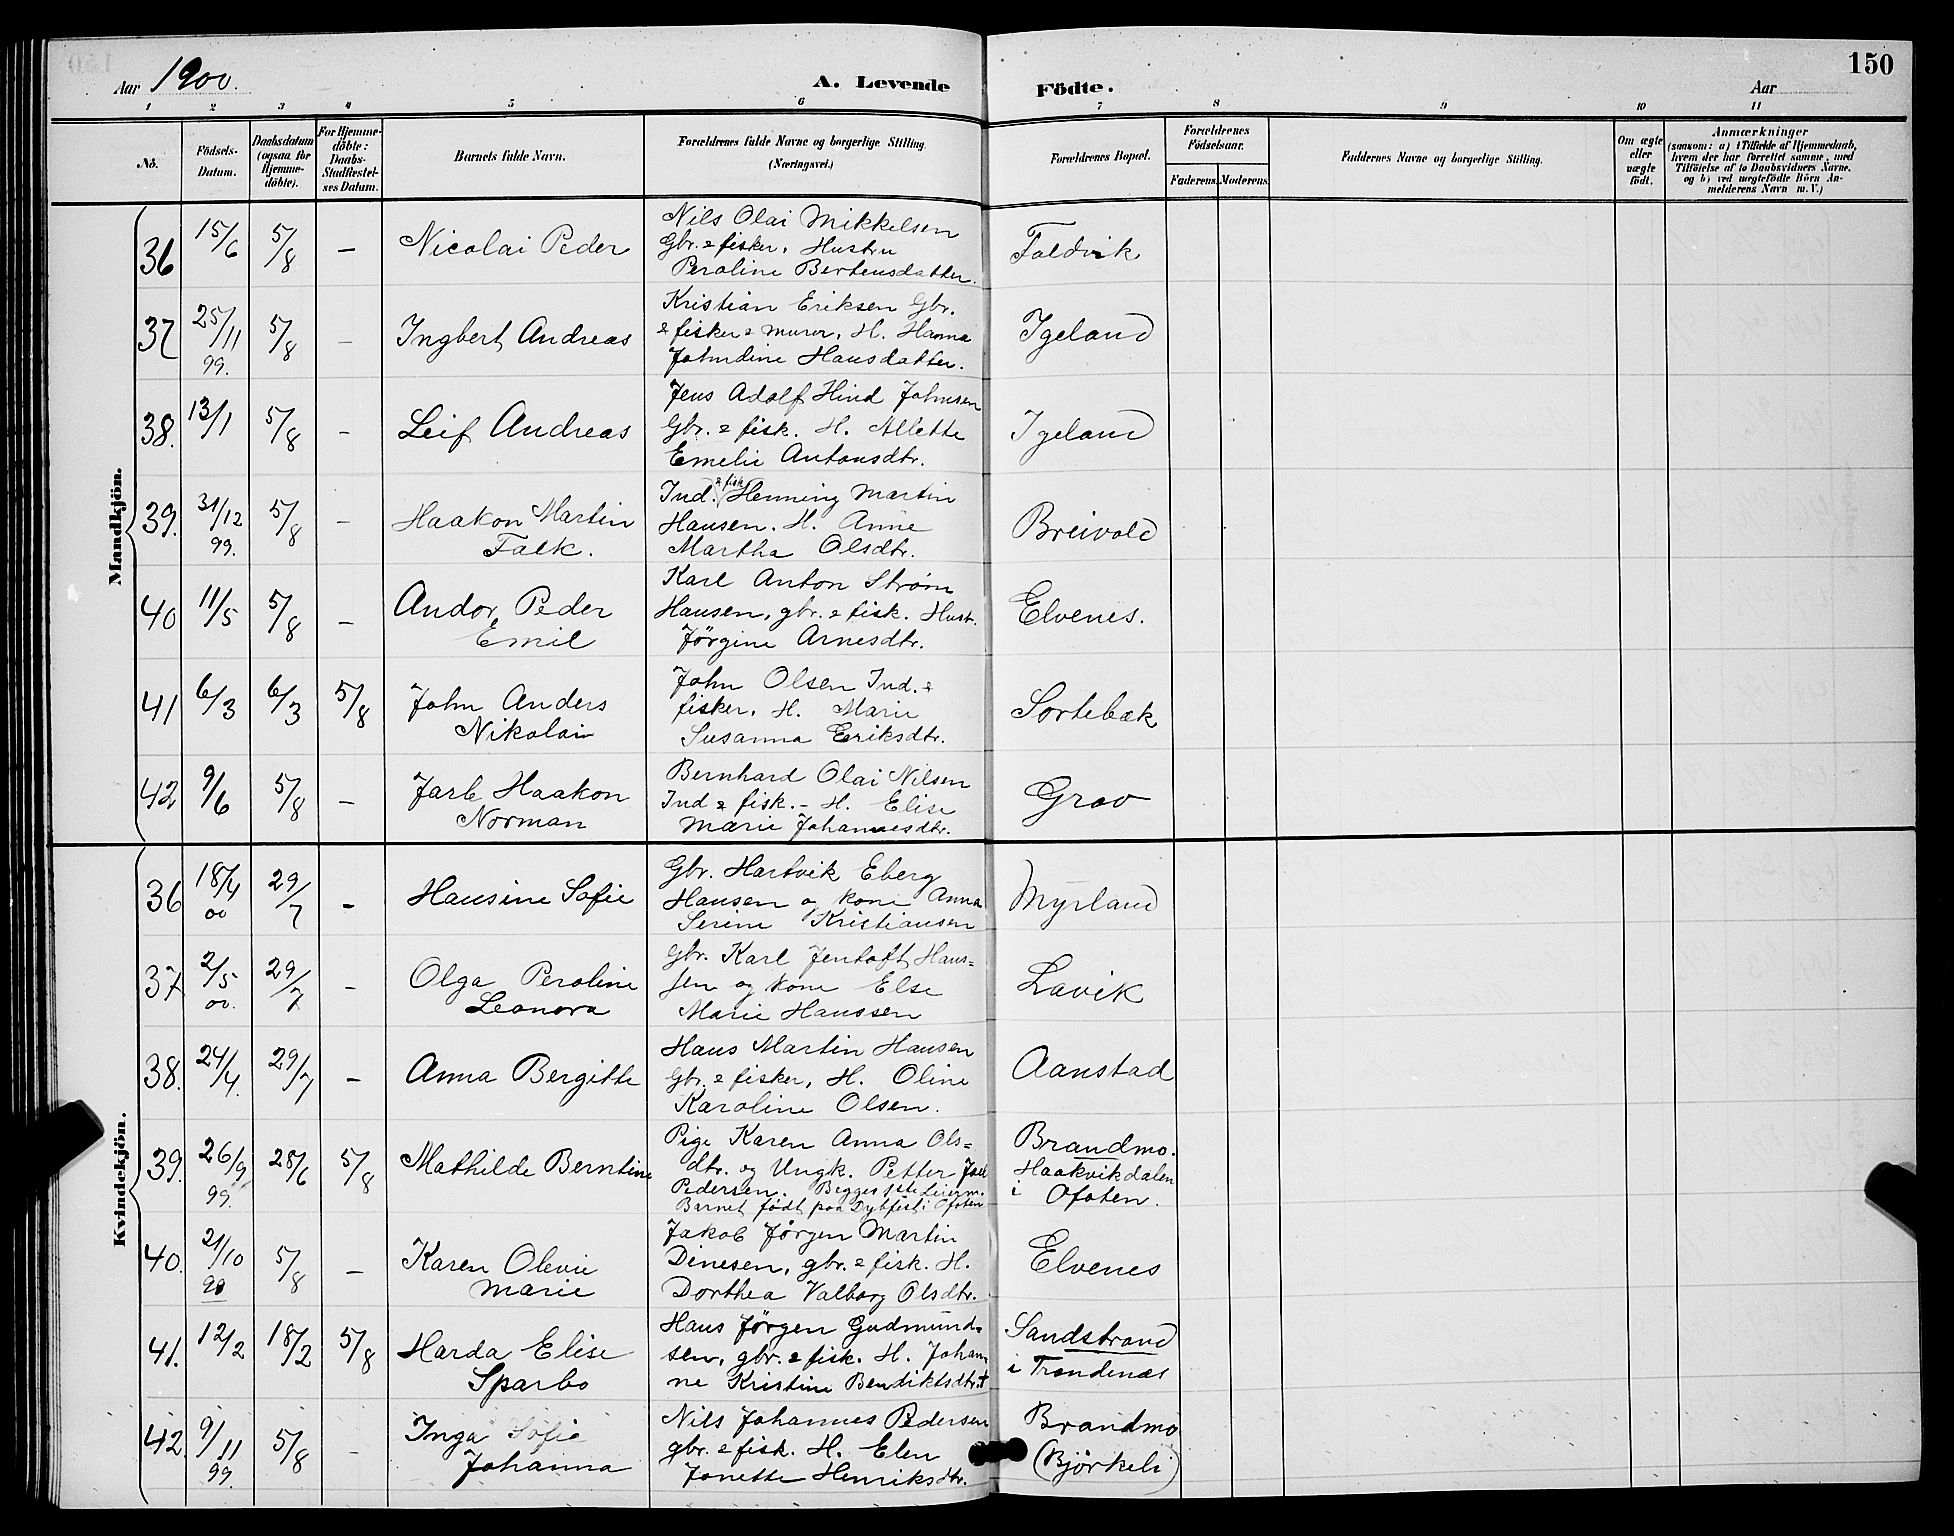 150
Aar 1900.
A. Levende Födte.
Aar
1 2 3 4 5 6 7 8 9 10 11
No.
Födsels-Datum.
Daabsdatum (ogsaa for Hjemme-döbte).
For Hjemme-döbte: Daabs-Stadfæstel-ses Datum.
Barnets fulde Navn.
Forældrenes fulde Navne og borgerlige Stilling. (Næringsvei.)
Forældrenes Bopæl.
Forældrenes Födselsaar.
Faderens. Moderens.
Faddernes Navne og borgerlige Stilling.
Om ægte eller uægte födt.
Anmærkninger
(saasom: a) i Tilfælde af Hjemmedaab, hvem der har forrettet samme, med Tilföielse af to Daabsvidners Navne, og b) ved uægtefödte Börn An-melderens Navn m. V.)
Mandkjön.
36 15/6 5/8 – Nicolai Peder
Nils Olai Mikkelsen
Gbr. & fisker, Hustru
Peroline Berteusdatter.
Foldvik
37 25/11 99. 5/8 – Ingbert Andreas
Kristian Eriksen Gbr.
& fisker & murer, H. Hanna
Johndine Hansdatter.
Igeland
38. 13/1 5/8 – Leif Andreas
Jens Adolf Hind Johnsen
Gbr. & fisk. H. Allette
Emelie Antonsdtr.
Igeland
39. 31/12 99. 5/8 – Haakon Martin
Falk.
Ind. & fisk Henning Martin
Hansen. H. Anne
Martha Olsdtr.
Breivold
40 11/5 5/8 – Andor Peder
Emil
Karl Anton Strøm
Hansen, gbr. & fisk. Hust.
Jörgine Arnesdtr.
Elvenes.
41 6/3 6/3 5/8 John Anders
Nikolai
John Olsen Ind. &
fisker, H. Marie
Susanna Eriksdtr.
Sortebæk
42 9/6 5/8 – Jarl Haakon
Norman
Bernhard Olai Nilsen
Ind & fisk. – H. Elise
Marie Johannesdtr.
Grov
Kvindekjön.
36 18/4 00 29/7 – Hansine Sofie
Gbr. Hartvik Eberg
Hansen og kone Anna
Serine Kristiansen
Myrland
37 2/5 00. 29/7 – Olga Peroline
Leonora
Gbr. Karl Jentoft Hans=
sen og kone Else
Marie Hanssen
Lavik
38. 24/4. 29/7 – Anna Bergitte
Hans Martin Hansen
Gbr. & fisker, H. Oline
Karoline Olsen.
Aanstad
39. 26/9 99. 28/6 5/8 Mathilde Berntine
Pige Karen Anna Ols=
dtr. og Ungk. Petter Joel
Pedersen. Begges 1ste Leierm.
Barnet født paa Dybfest i Ofoten
Brandmo.
Haakvikdalen
i Ofoten.
40. 21/10 5/8 – Karen Olevie
Marie
Jakob Jörgen Martin
Dinesen, gbr. & fisk. H.
Dorthea Valborg Olsdtr.
Elvenes
41. 12/2 18/2 5/8 Harda Elise
Sparbo
Hans Jörgen Gudmund=
sen, gbr. & fisk. H. Johan=
ne Kristine Bendiktsdtr.
Sandstrand
i Trondenæs
42. 9/11 99. 5/8 – Inga Sofie
Johanna
Nils Johannes Pedersen
gbr. & fisk. H. Elen
Jonette Henriksdtr.
Brandmo
(Björkeli)